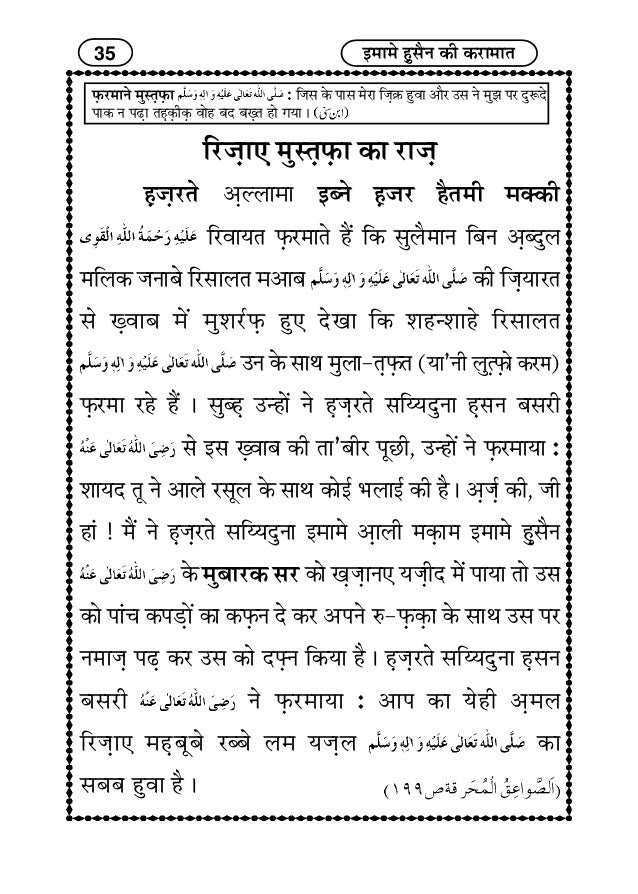 35
इमामे हुसैन की करामात
फ़रमाने मुस्त़फ़ा صَلَّی اللہ تَعَالٰی عَلَیْہِ وَ اٰلِہٖ وَسَلَّم : जिस के पास मेरा ज़िक्र हुवा और उस ने मुझ पर दुरूदे
पाक न पढ़ा तह़क़ीक़ वोह बद बख़्त हो गया । (ابن سنی)
रिज़ाए मुस्त़फ़ा का राज़
ह़ज़रते अ़ल्लामा इब्ने ह़जर हैतमी मक्की
عَلَیْہِ رَحْمَۃُ اللہِ الْقَوِی रिवायत फ़रमाते हैं कि सुलैमान बिन अ़ब्दुल
मलिक जनाबे रिसालत मआब صَلَّی اللہ تَعَالٰی عَلَیْہِ وَ اٰلِہٖ وَسَلَّم की ज़ियारत
से ख़्वाब में मुशर्रफ़ हुए देखा कि शहन्शाहे रिसालत
صَلَّی اللہ تَعَالٰی عَلَیْہِ وَ اٰلِہٖ وَسَلَّم उन के साथ मुला-त़फ़त (या'नी लुत़्फ़ो करम)
फ़रमा रहे हैं । सुब्ह़ उन्हों ने ह़ज़रते सय्यिदुना ह़सन बसरी
رَضِیَ اللہُ تَعَالٰی عَنْہُ से इस ख़्वाब की ता'बीर पूछी, उन्हों ने फ़रमाया :
शायद तू ने आले रसूल के साथ कोई भलाई की है । अ़र्ज़ की, जी
हां ! मैं ने ह़ज़रते सय्यिदुना इमामे आ़ली मक़ाम इमामे हु़सैन
رَضِیَ اللہُ تَعَالٰی عَنْہُ के मुबारक सर को ख़ज़ानए यज़ीद में पाया तो उस
को पांच कपड़ों का कफ़न दे कर अपने रु-फ़क़ा के साथ उस पर
नमाज़ पढ़ कर उस को दफ़्न किया है । ह़ज़रते सय्यिदुना ह़सन
बसरी رَضِیَ اللہُ تَعَالٰی عَنْہُ ने फ़रमाया : आप का येही अ़मल
रिज़ाए मह़बूबे रब्बे लम यज़ल صَلَّی اللہ تَعَالٰی عَلَیْہِ وَ اٰلِہٖ وَسَلَّم का
सबब हुवा है ।
(اَلصَّوَاعِقُ الْمُحَرقۃ ص١٩٩)